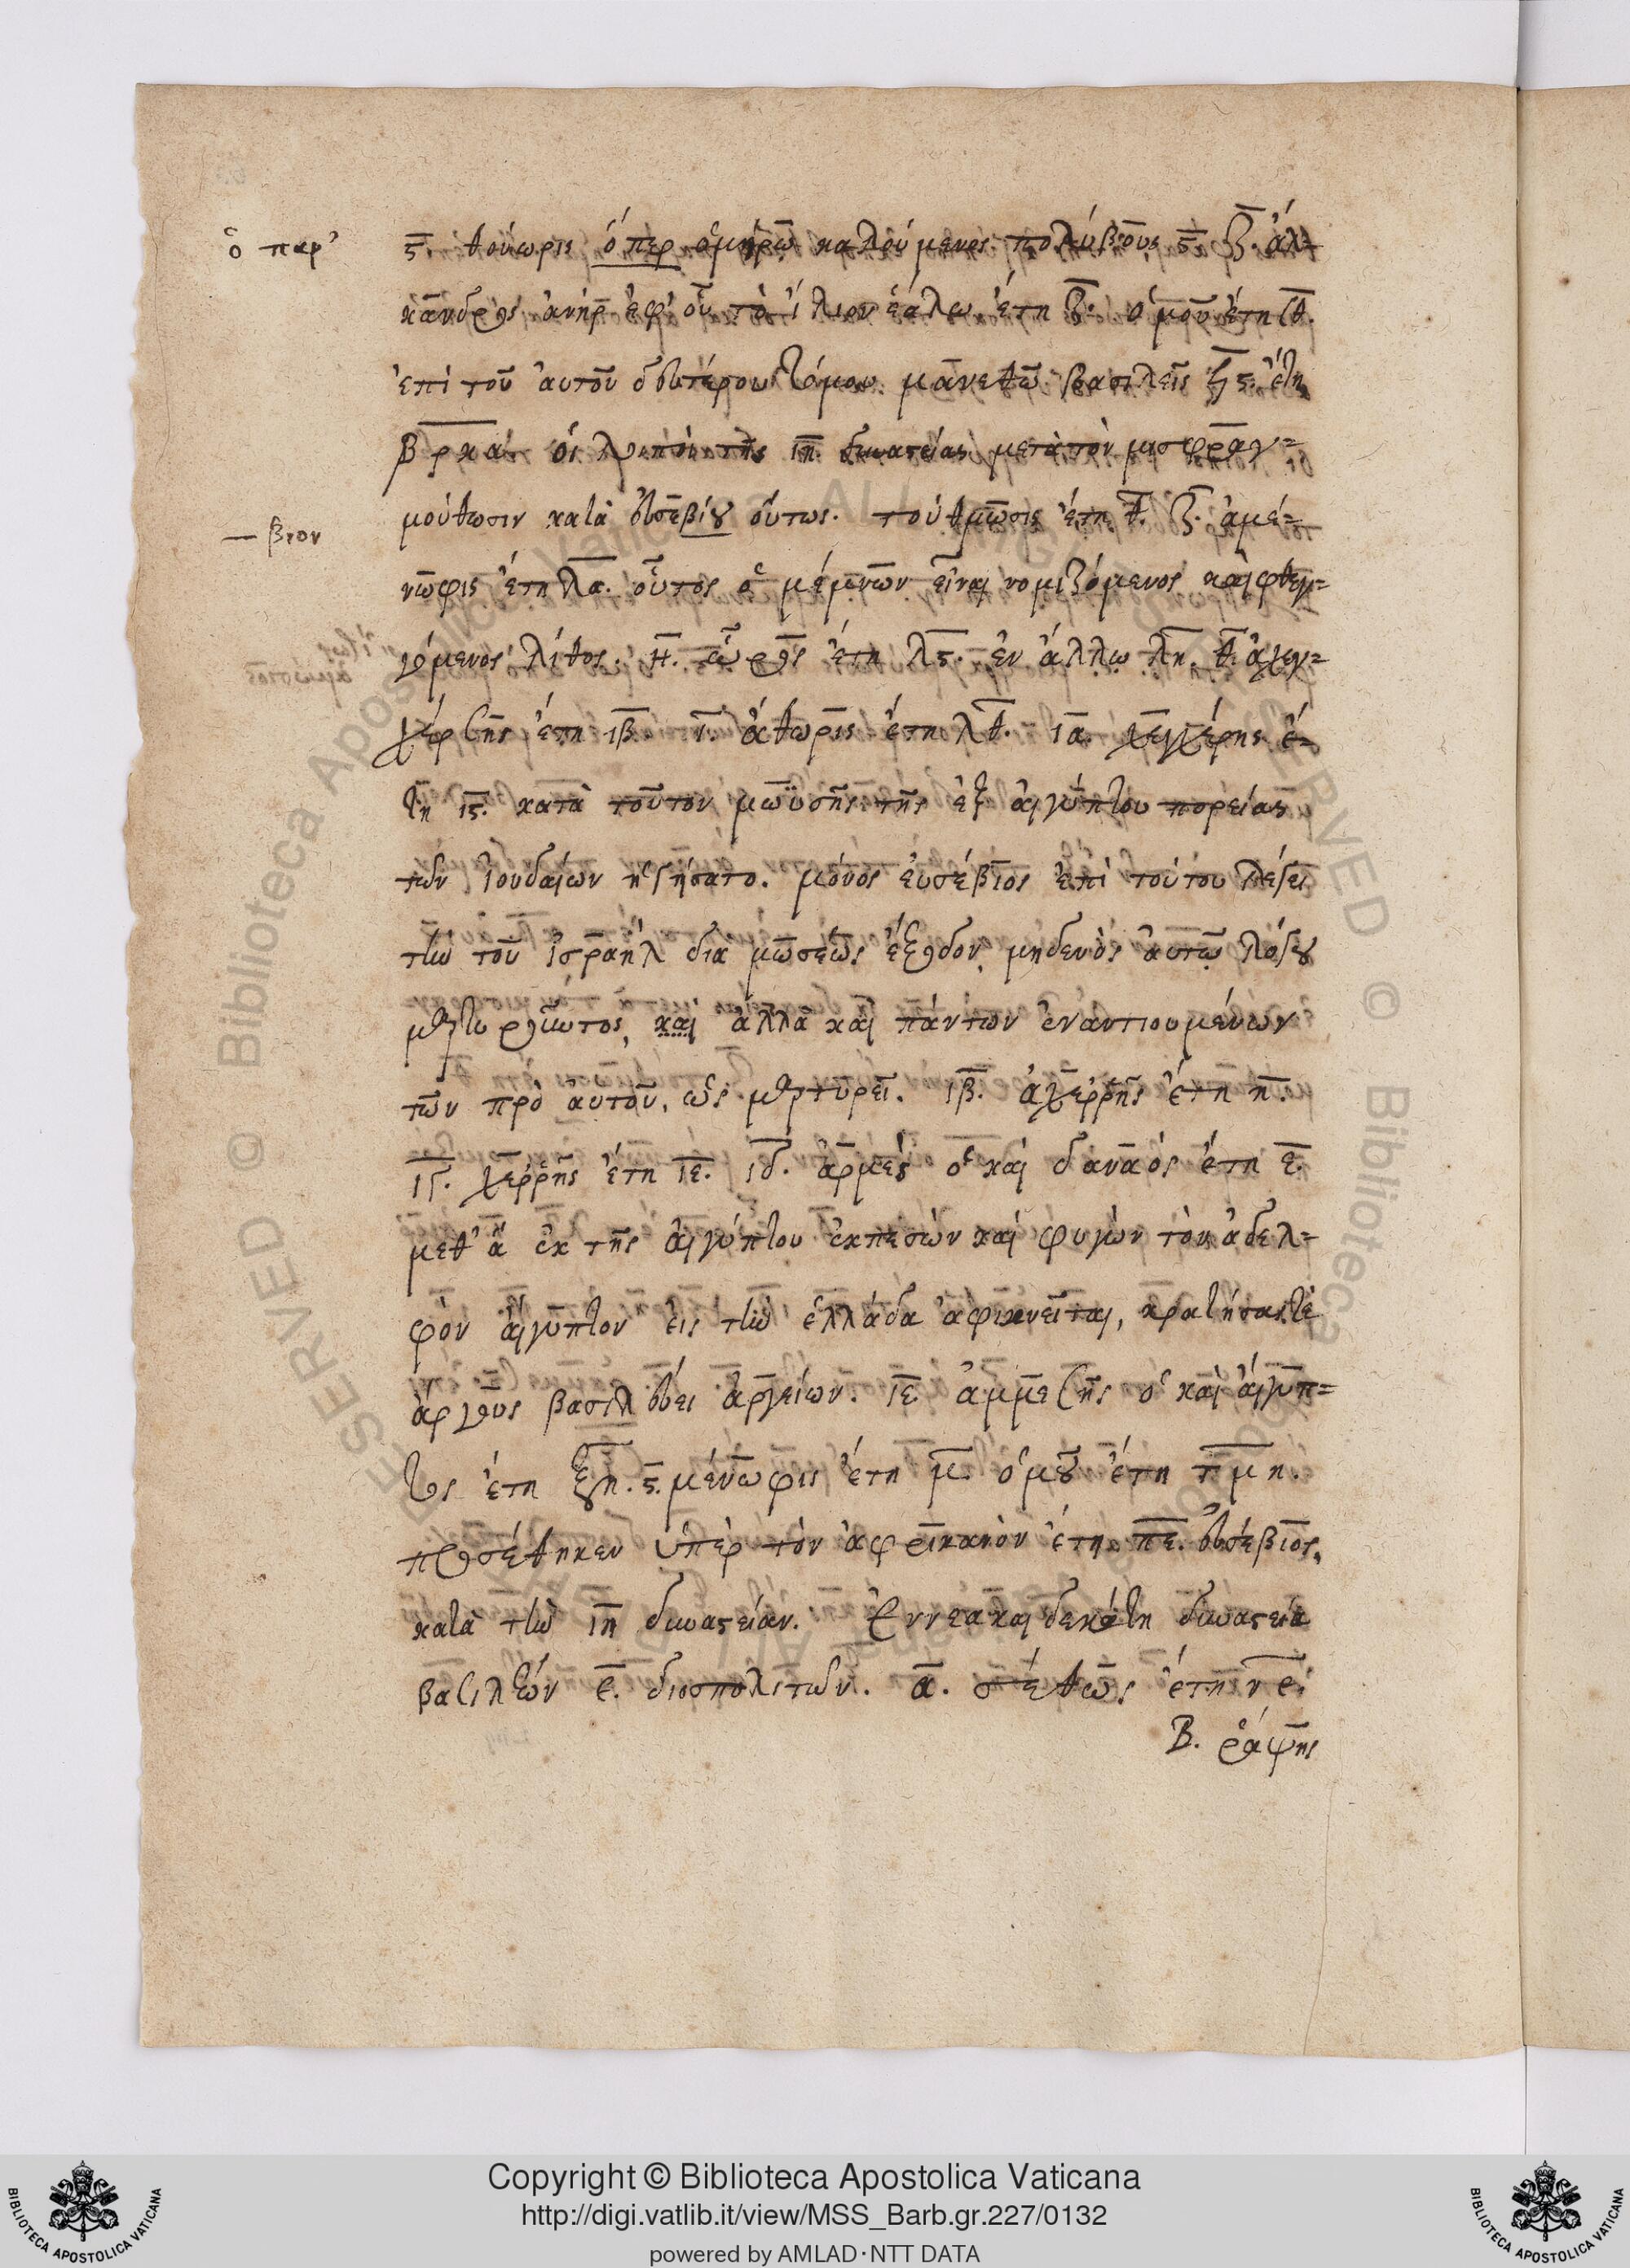 ὁ παρ'
ς̅. θούωρις ὁ περ ὁμήρω καλούμενος πολύβους ς̅. ζ̅. ἀλ=
κανδρος ἀνήρ ἐφ' οὗ τὸ ἴλιον ἑάλω ἔτη ζ̅. ὁμοῦ ἔτη σ̅θ̅.
ἐπὶ τοῦ αὐτοῦ δευτέρου τόμου μανεθῶ βασιλεῖς ϟ̅ς̅. ἔτη
β̅ρ̅κ̅α̅. οἱ λοιποὶ τῆς ι̅η̅ δυναστείας μετὰ τὸν μισφραγ=
μούθωσιν κατὰ εὐσεβίου οὕτως. τούθμωσις ἔτη θ̅. ζ̅. ἀμέ=
— βιον
νωφις ἔτη λ̅α̅. οὗτος ὁ μέμνων εἶναι νομιζόμενος καὶ φθεγ=
γόμενος λίθος. η̅. ὧρος ἔτη λ̅ς̅. ἐν ἄλλω λ̅η̅. θ̅. ἀχεγ=
χέρσης ἔτη ι̅β̅ ι̅. ἄθωρις ἔτη λ̅θ̅. ι̅α̅. χεγχέρης ἔ=
τη ι̅ς̅. κατὰ τοῦτον μωϋσῆς τῆς ἐξ αἰγύπτου πορείας
τῶν ἰουδαίων ἡγήσατο. μόνος εὐσέβιος ἐπὶ τούτου λέγει
τὴν τοῦ ἰσραὴλ διὰ μωσέως ἔξοδον, μηδενὸς αὐτῶ λόγου
μαρτυροῦντος, καὶ ἀλλὰ καὶ πάντων ἐναντιουμένων
τῶν πρὸ αὐτοῦ, ὡς μαρτυρεῖ. ι̅β̅. ἀχερρῆς ἔτη η̅.
ι̅γ̅. χερρῆς ἔτη ι̅ε̅. ι̅δ̅. ἁρμεὺς ὁ καὶ δαναὸς ἔτη ε̅.
μεθ' ἃ ἐκ τῆς αἰγύπτου ἐκπεσὼν καὶ φυγὼν τὸν ἀδελ=
φὸν αἴγυπτον εἰς τὴν ἑλλάδα ἀφικνεῖται, κρατήσας τε
ἄργους βασιλεύει ἀργείων. ι̅ε̅ ἀμμεσῆς ὁ καὶ αἴγυπ=
τος ἔτη ξ̅η̅. ς̅. μένωφις ἔτη μ̅. ὁμοῦ ἔτη τ̅μ̅η̅.
προσέθηκεν ὑπὲρ τὸν ἀφρικανὸν ἔτη π̅ε̅. εὐσέβιος,
κατὰ τὴν ι̅η̅ δυναστείαν. Ἐννεακαιδεκάτη δυναστεία
βασιλέων ε̅. διοσπολιτῶν. α̅. σέθως ἔτη ν̅ε̅.
Β. ῥάψης
Copyright © Biblioteca Apostolica Vaticana
http://digi.vatlib.it/view/MSS_Barb.gr.227/0132
powered by AMLAD·NTT DATA